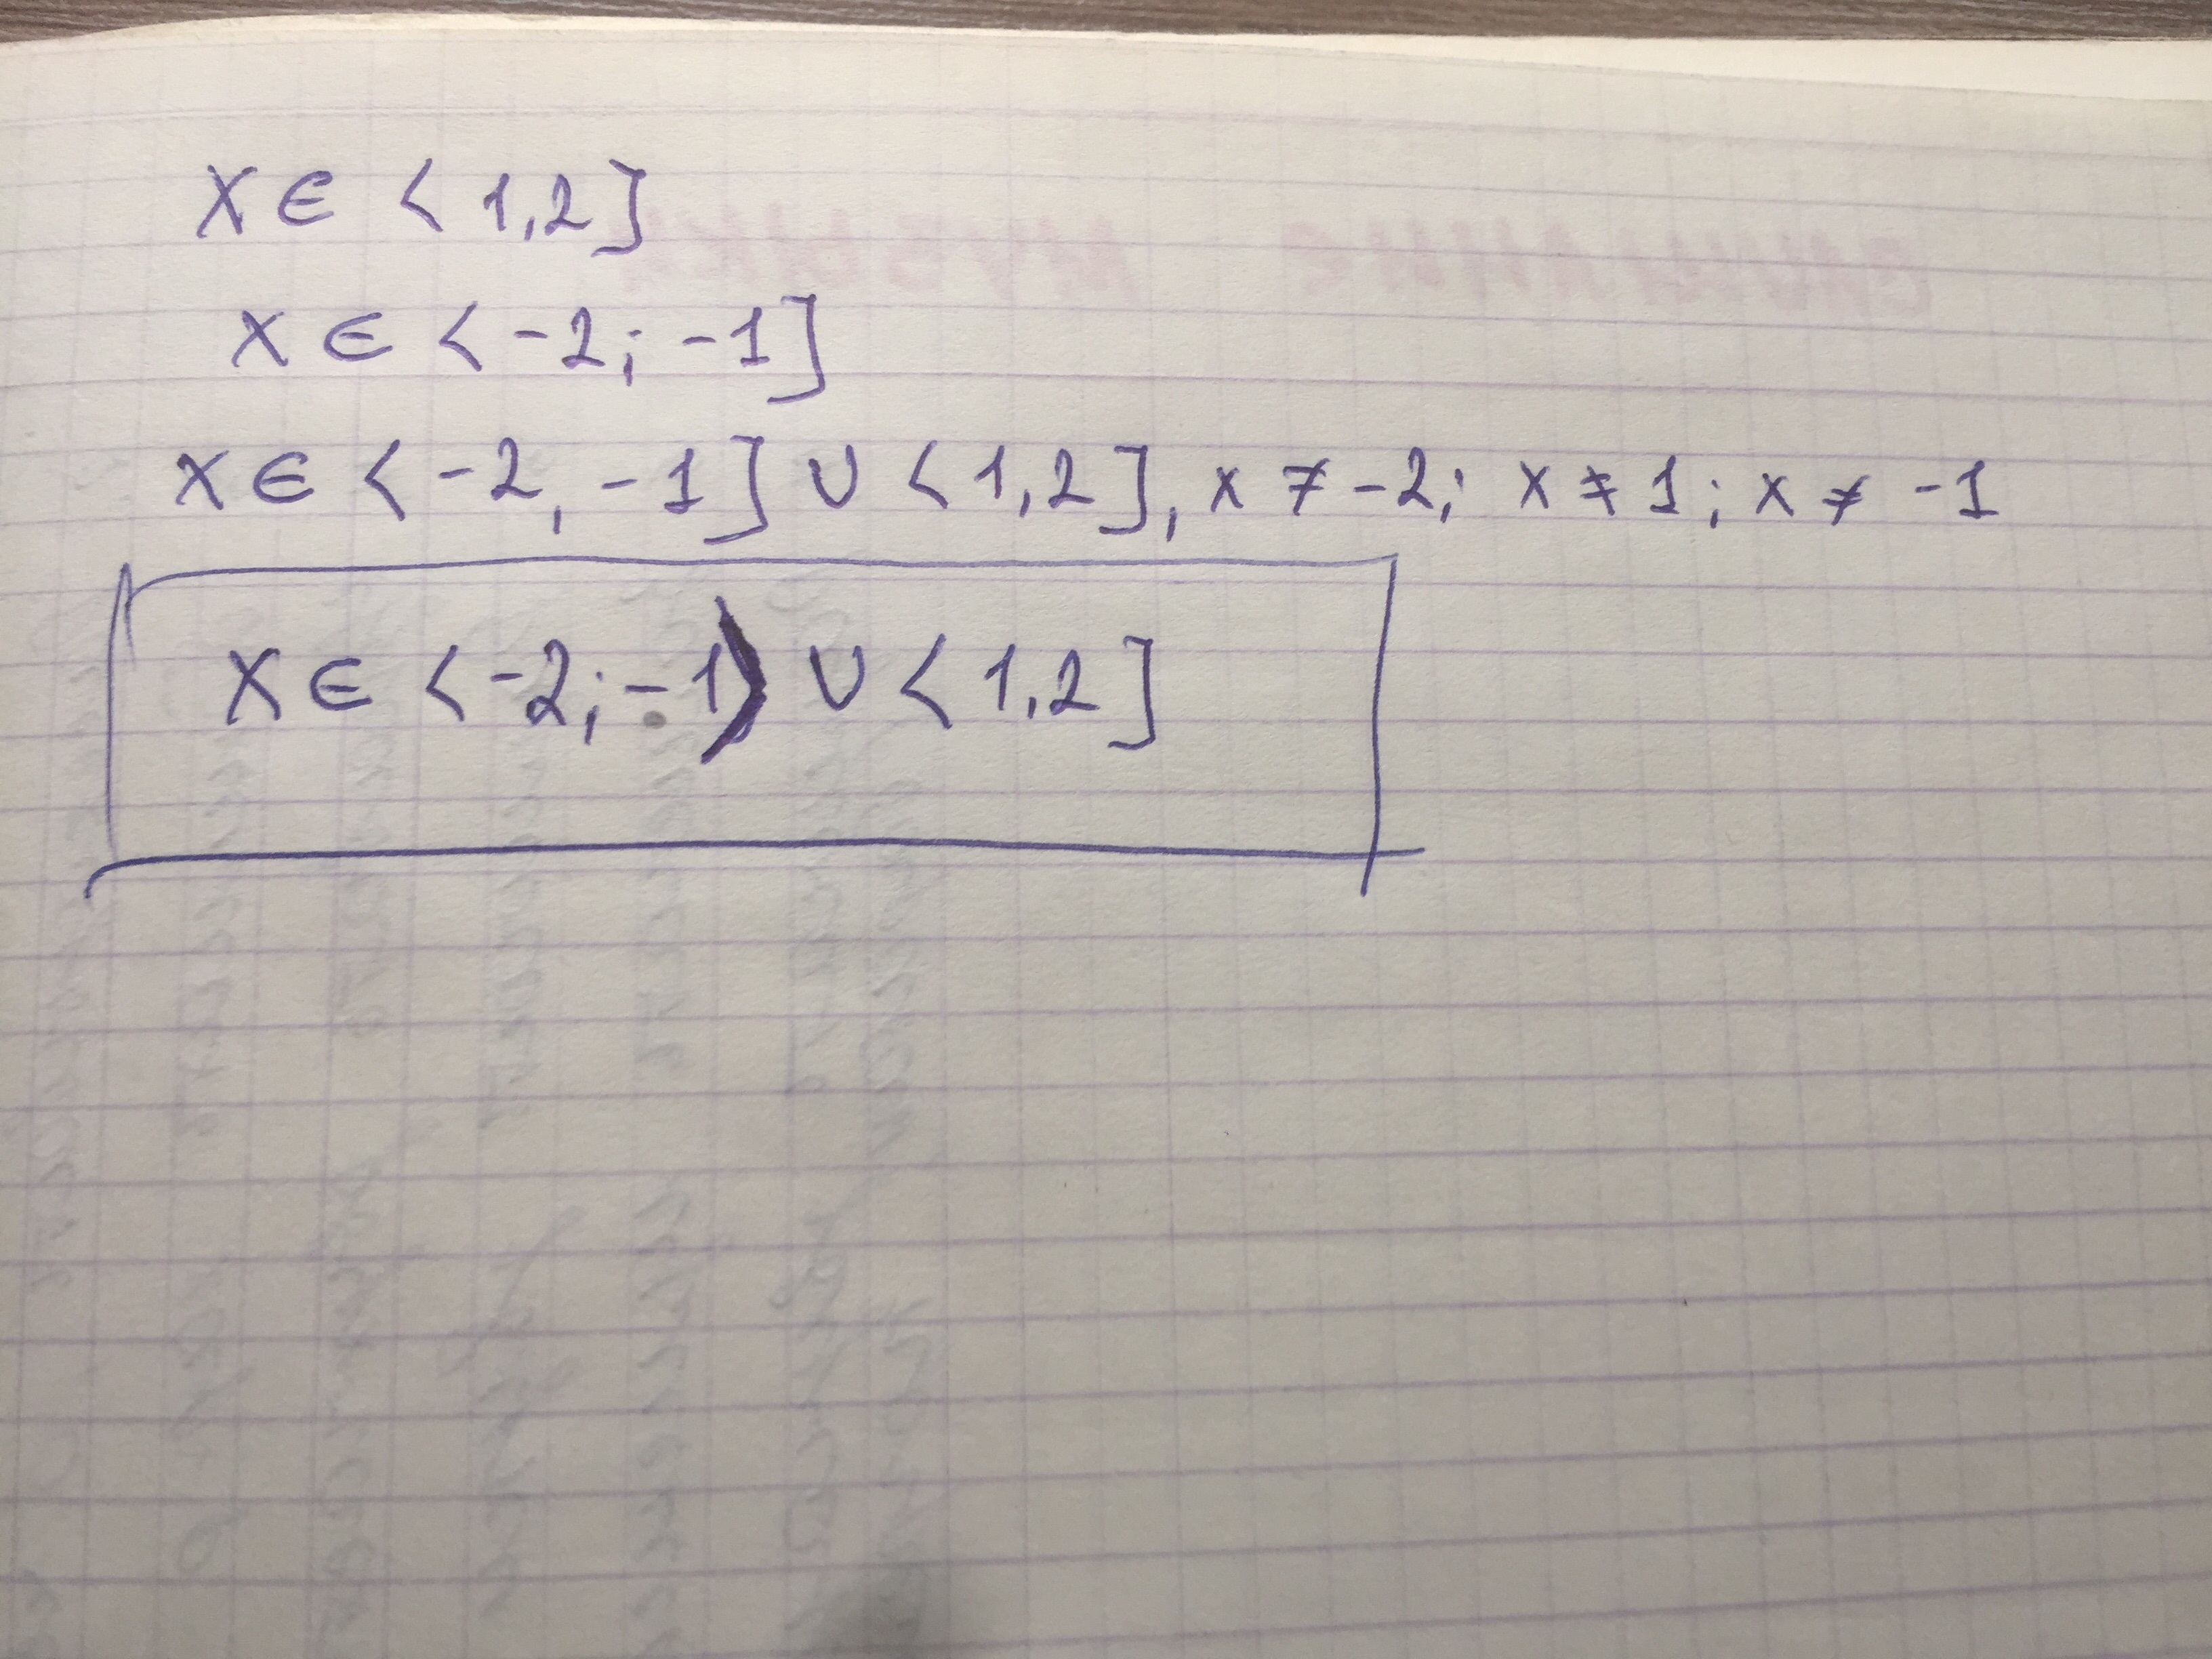 x ∈ < 1,2]
x ∈ < -2; -1]
x ∈ < -2, -1] ∪ < 1,2], x ≠ -2; x ≠ 1; x ≠ -1
x ∈ < -2; -1) ∪ < 1,2]